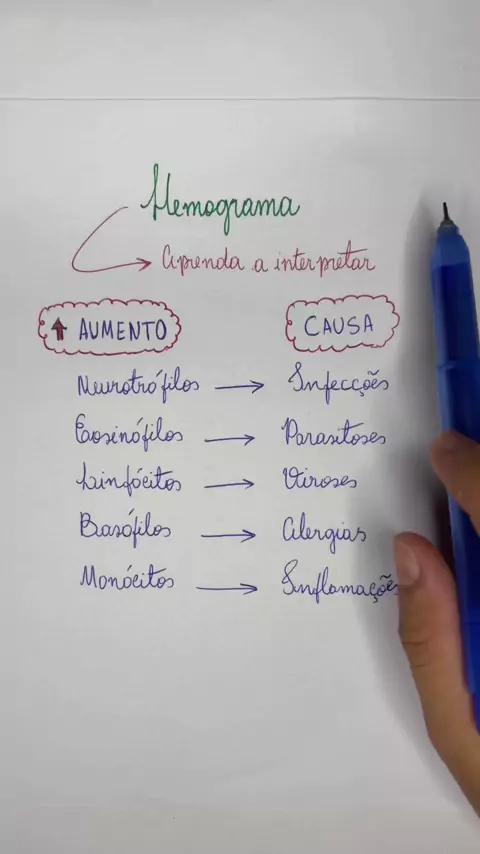 Hemograma
Aprenda a interpretar
AUMENTO CAUSA
Neurotrófilos → Infecções
Eosinófilos → Parasitoses
Linfócitos → Viroses
Basófilos → Alergias
Monócitos → Inflamações